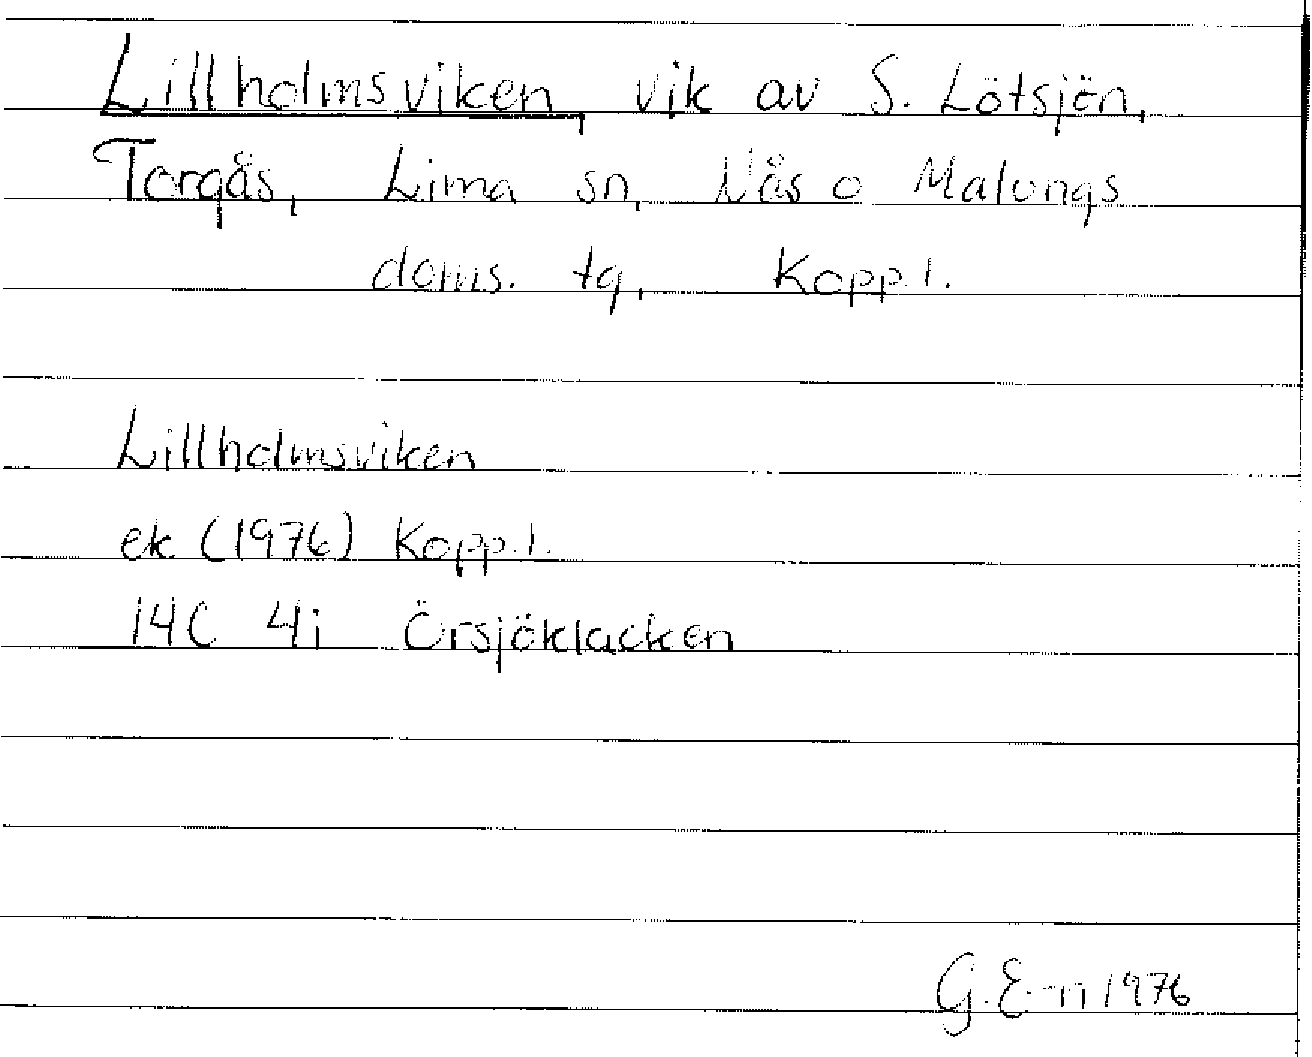 Lillholmsviken, vik av S. Lötsjön,
Torgås, Lima sn, Nås o Malungs
doms. tg, Kopp.l.
Lillholmsviken
ek (1976) Kopp.l.
14C 4i Örsjöklacken
G. E-n 1976